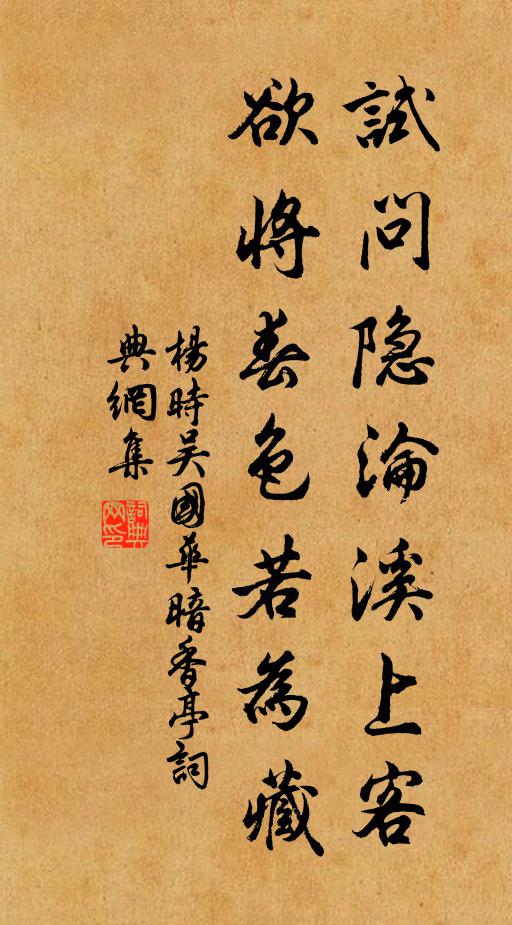 試問隐淪溪上客
欲將春色若為藏
楊時吴國華暗香亭詞
典網集
詞典网印